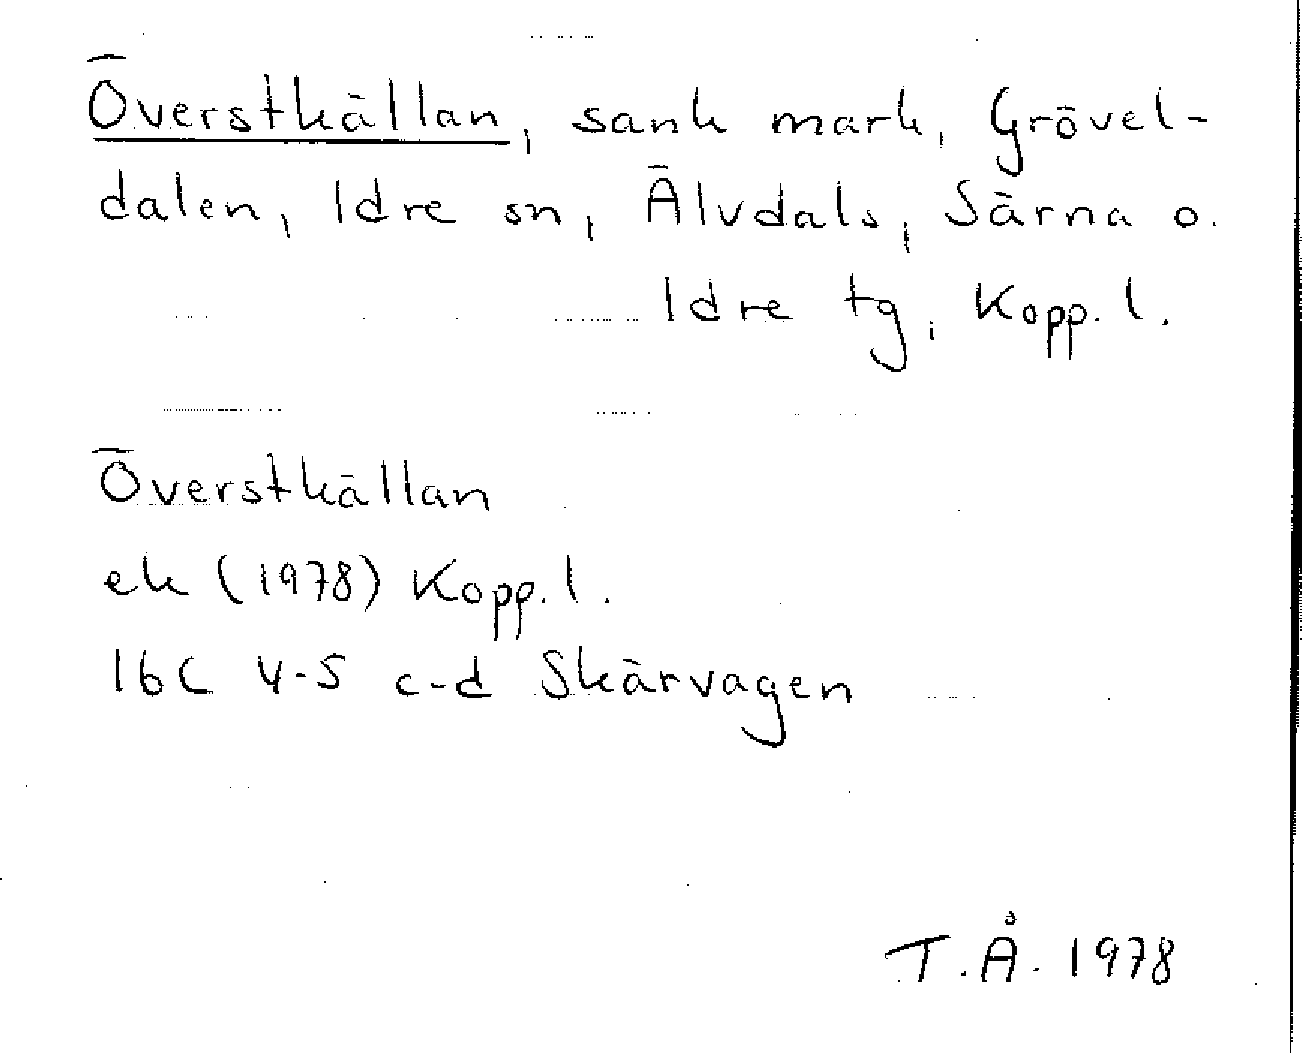 Överstkällan, sank mark, Grövel-
dalen, Idre sn, Älvdals, Särna o.
Idre tg, Kopp. l.
Överstkällan
ek (1978) Kopp. l.
16C 4-5 c-d Skärvagen
T.Å. 1978